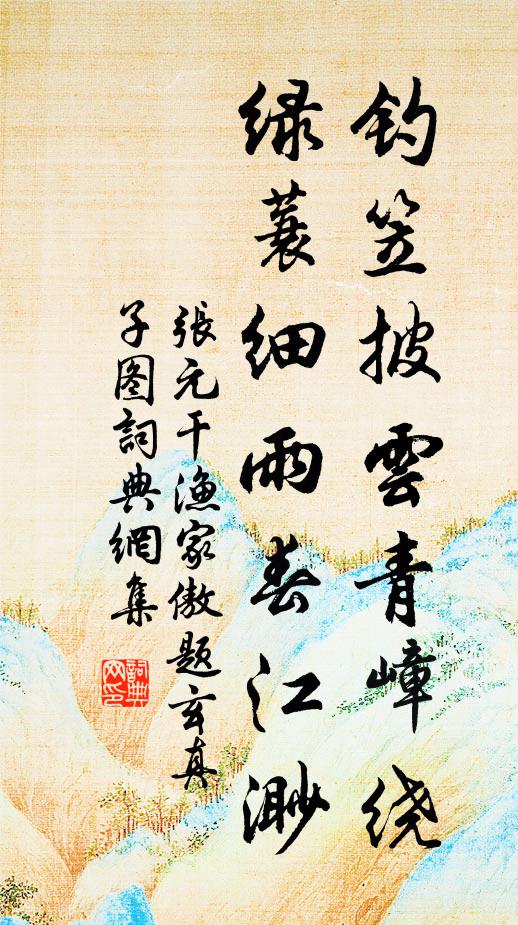 钓笠披雲青嶂绕
绿蓑细雨春江渺
張元干漁家傲题玄真
子图詞典網集
詞典
网印